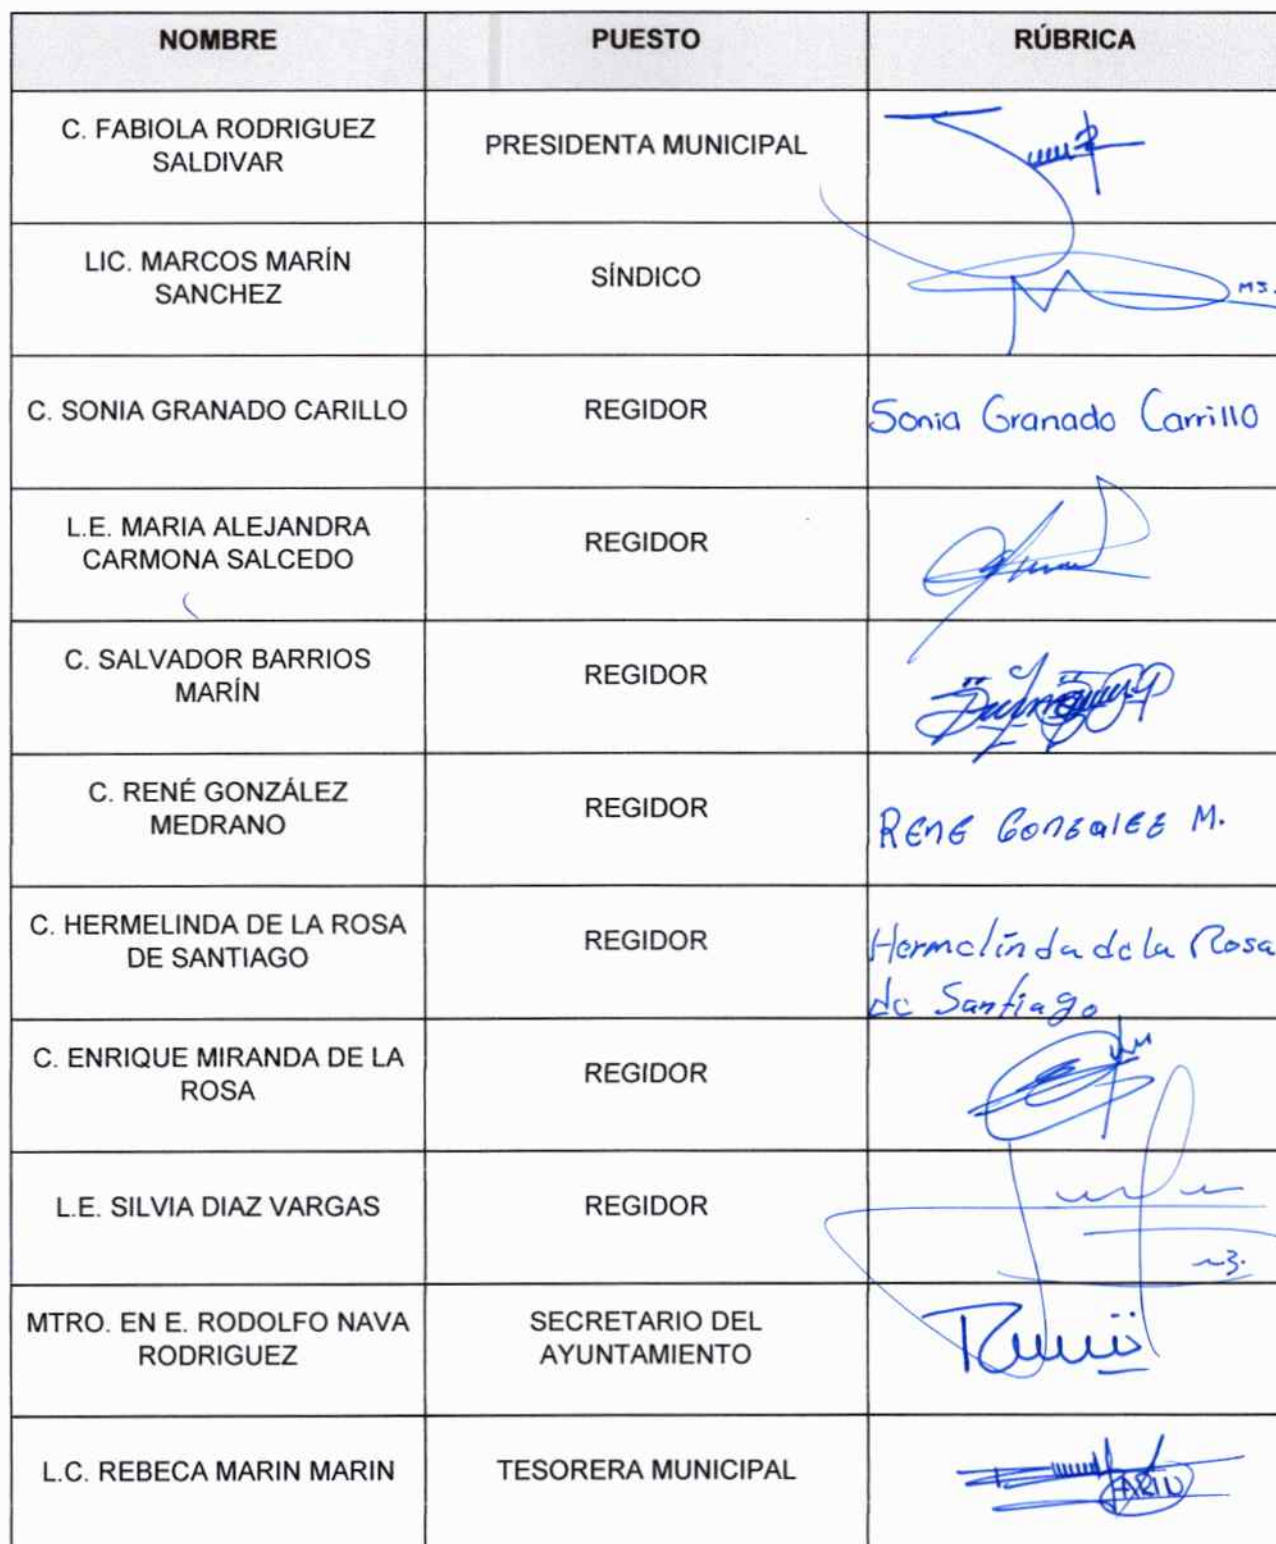 NOMBRE PUESTO RÚBRICA
C. FABIOLA RODRIGUEZ
SALDIVAR
PRESIDENTA MUNICIPAL
LIC. MARCOS MARÍN
SANCHEZ
SÍNDICO
MS.
C. SONIA GRANADO CARILLO
REGIDOR
Sonia Granado Carrillo
L.E. MARIA ALEJANDRA
CARMONA SALCEDO
REGIDOR
C. SALVADOR BARRIOS
MARÍN
REGIDOR
C. RENÉ GONZÁLEZ
MEDRANO
REGIDOR
RENE GonzalEz M.
C. HERMELINDA DE LA ROSA
DE SANTIAGO
REGIDOR
Hermelinda de la Rosa
de Santiago
C. ENRIQUE MIRANDA DE LA
ROSA
REGIDOR
L.E. SILVIA DIAZ VARGAS
REGIDOR
MTRO. EN E. RODOLFO NAVA
RODRIGUEZ
SECRETARIO DEL
AYUNTAMIENTO
L.C. REBECA MARIN MARIN
TESORERA MUNICIPAL